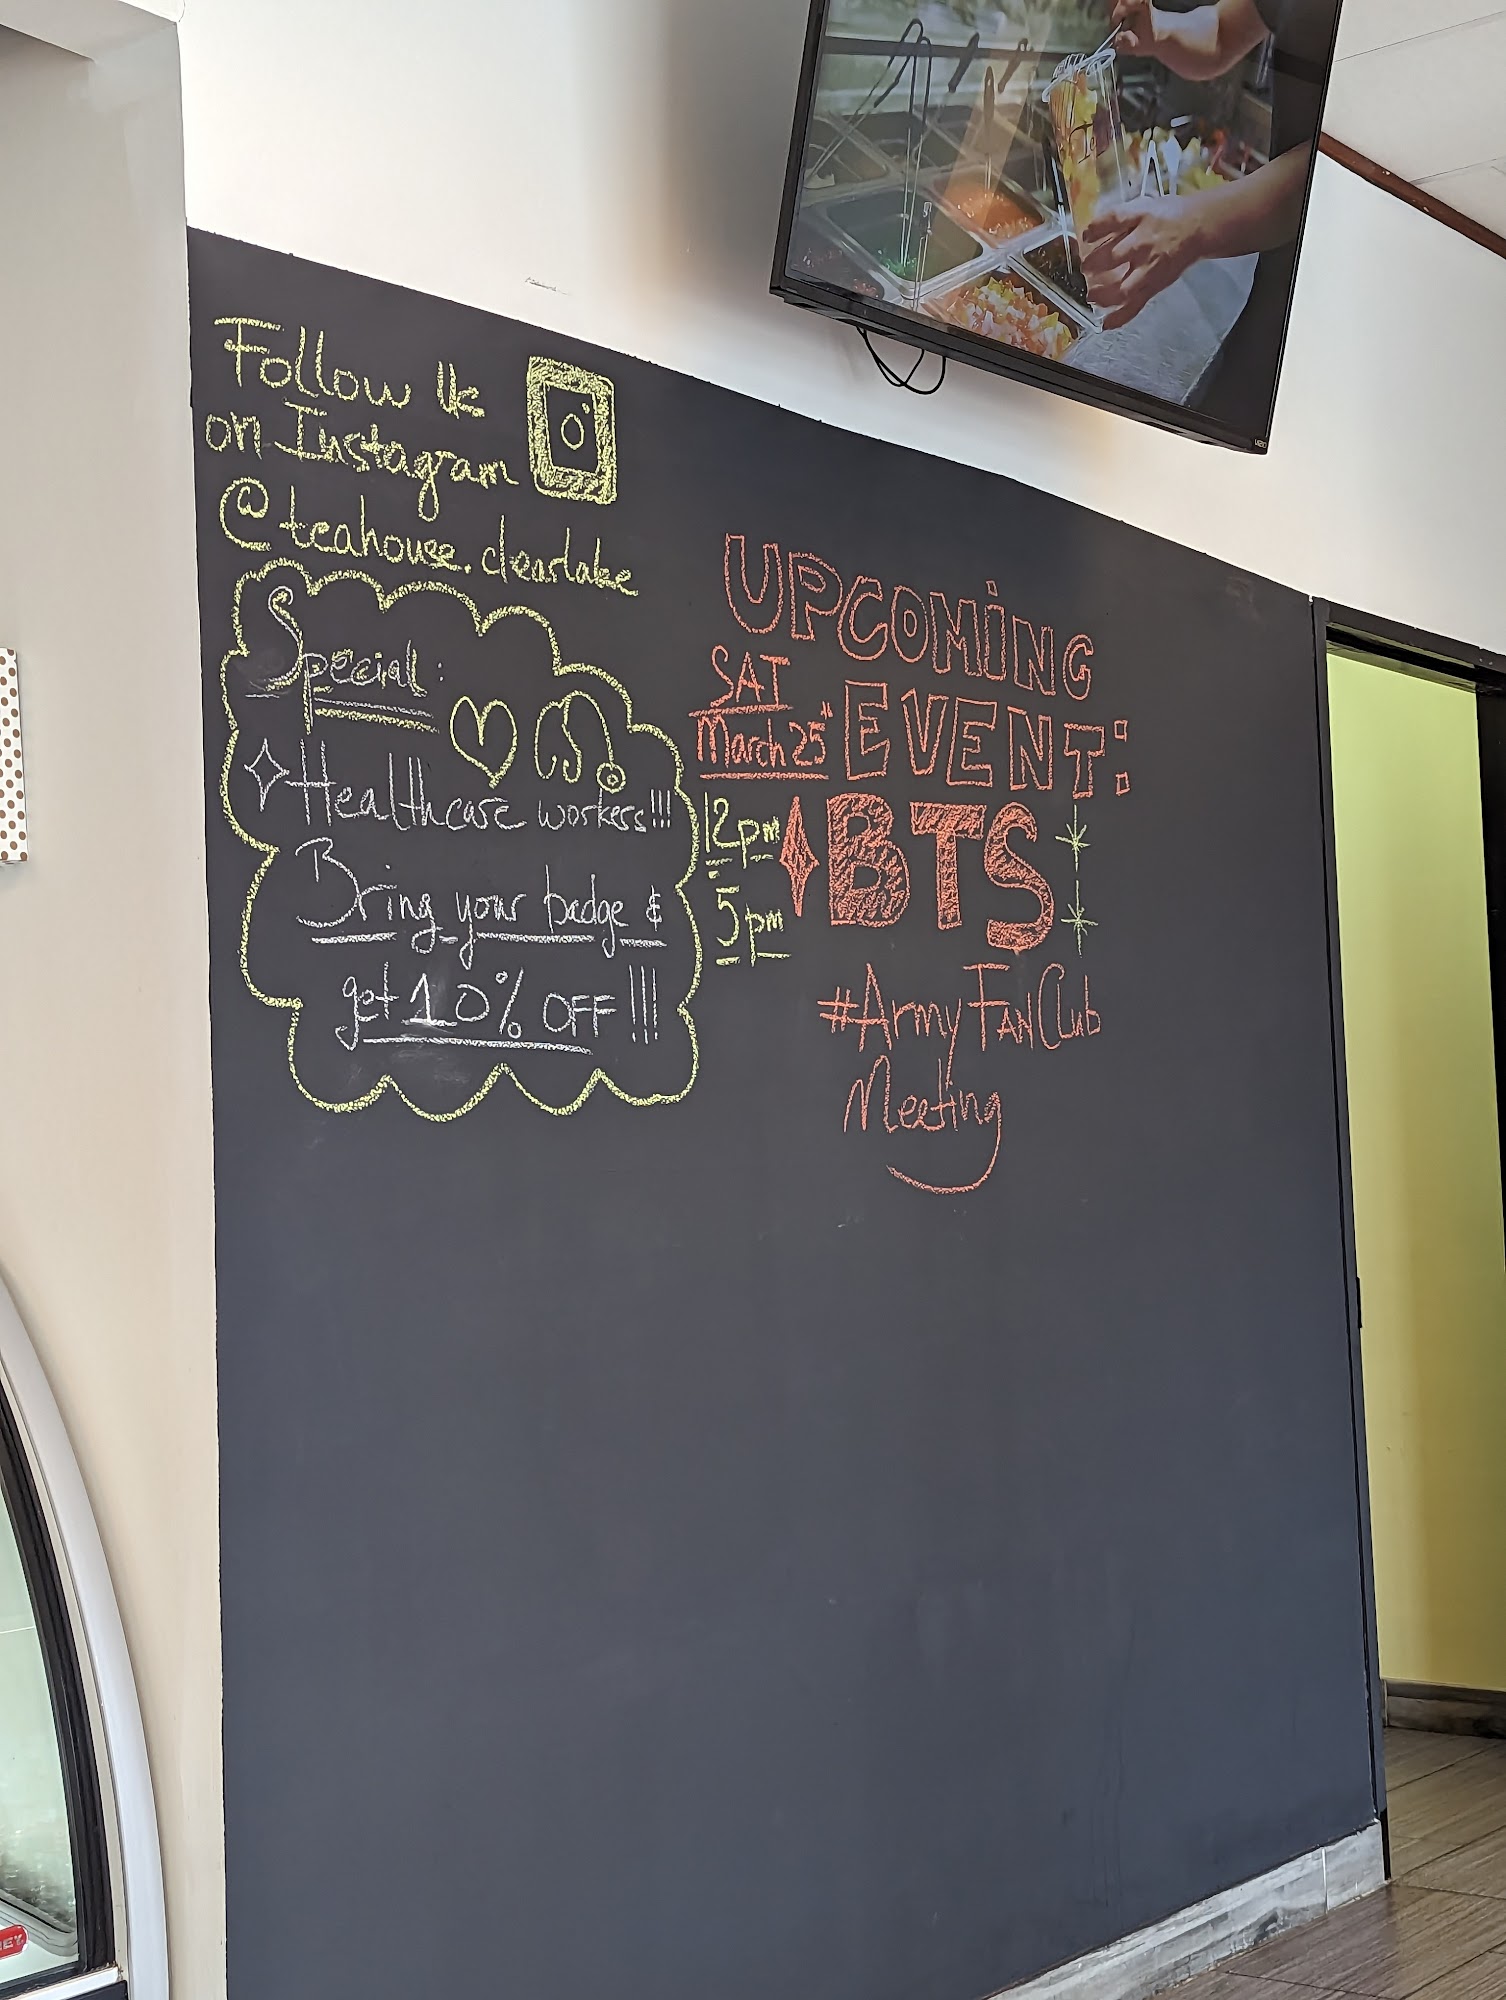 Follow Us
on Instagram
@teahouse.clearlake
Special:
Healthcare workers!!!
Bring your badge &
get 10% OFF!!!
UPCOMING
EVENT:
SAT
March 25th
12pm
5pm
BTS
#Army FAN Club
Meeting
VIZIO